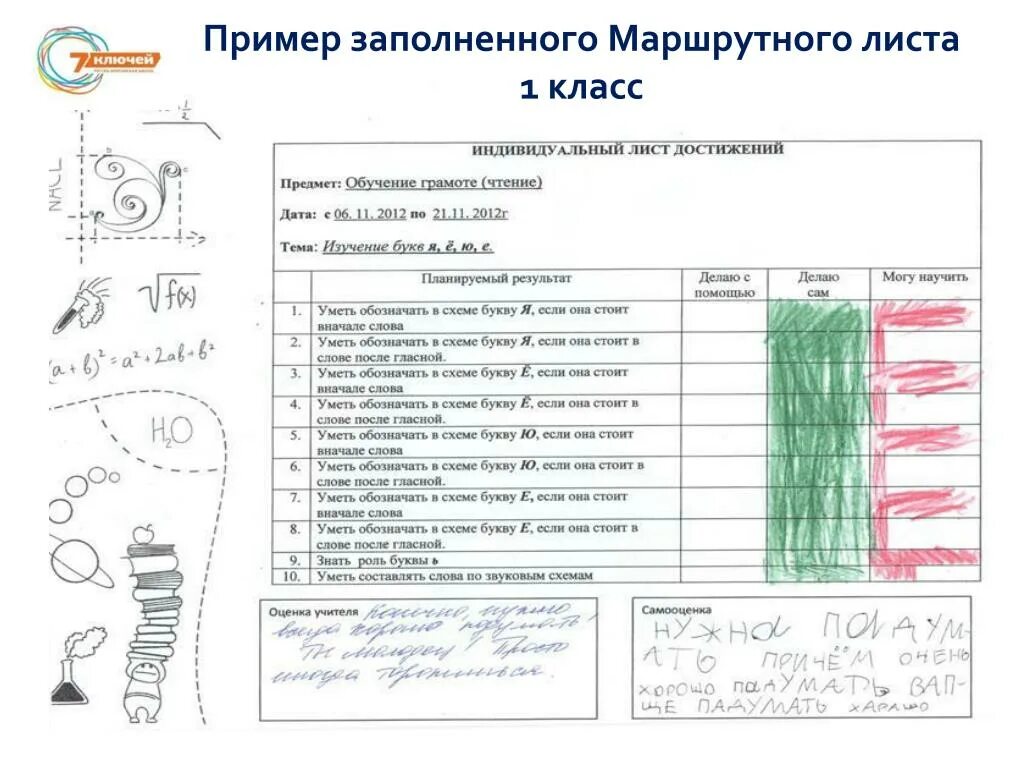 7 КЛЮЧЕЙ
Пример заполненного Маршрутного листа
1 класс
1/2
NACL
√f(x)
(a + b)² = a² + 2ab + b²
H₂O
ИНДИВИДУАЛЬНЫЙ ЛИСТ ДОСТИЖЕНИЙ
Предмет: Обучение грамоте (чтение)
Дата: с 06. 11. 2012 по 21.11. 2012г
Тема: Изучение букв я, ё, ю, е.
Планируемый результат Делаю с помощью Делаю сам Могу научить
1. Уметь обозначать в схеме букву Я, если она стоит
вначале слова
2. Уметь обозначать в схеме букву Я, если она стоит в
слове после гласной.
3. Уметь обозначать в схеме букву Ё, если она стоит
вначале слова
4. Уметь обозначать в схеме букву Ё, если она стоит в
слове после гласной.
5. Уметь обозначать в схеме букву Ю, если она стоит
вначале слова
6. Уметь обозначать в схеме букву Ю, если она стоит в
слове после гласной.
7. Уметь обозначать в схеме букву Е, если она стоит
вначале слова
8. Уметь обозначать в схеме букву Е, если она стоит в
слове после гласной.
9. Знать роль буквы ь
10. Уметь составлять слова по звуковым схемам
Оценка учителя Конечно, нужно
всегда хорошо подумать!
Ты молодец! Просто
иногда торопишься.
Самооценка
НУЖНА ПАДУМ-
АТЬ ПРИЧЁМ ОЧЕНЬ
ХОРОШО ПАДУМАТЬ ВАП-
ЩЕ ПАДУМАТЬ ХАРАШО